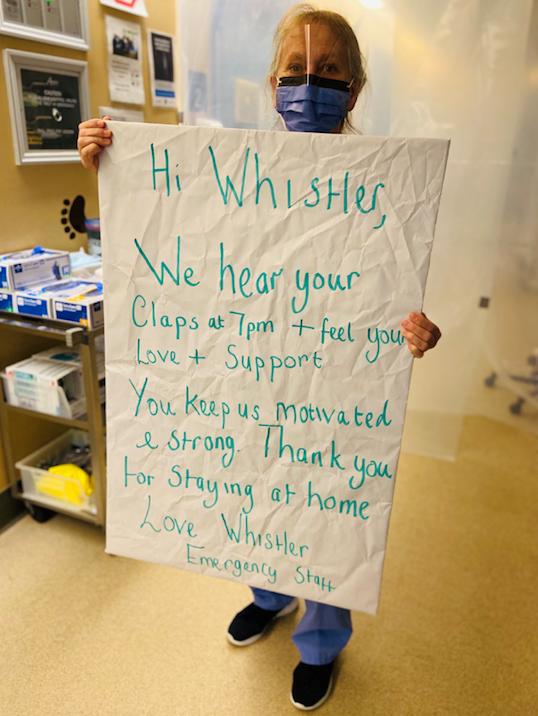 Hi Whistler,
We hear your
Claps at 7pm + feel your
Love + Support
You keep us motivated
& strong. Thank you
for staying at home
Love Whistler
Emergency Staff
CAUTION